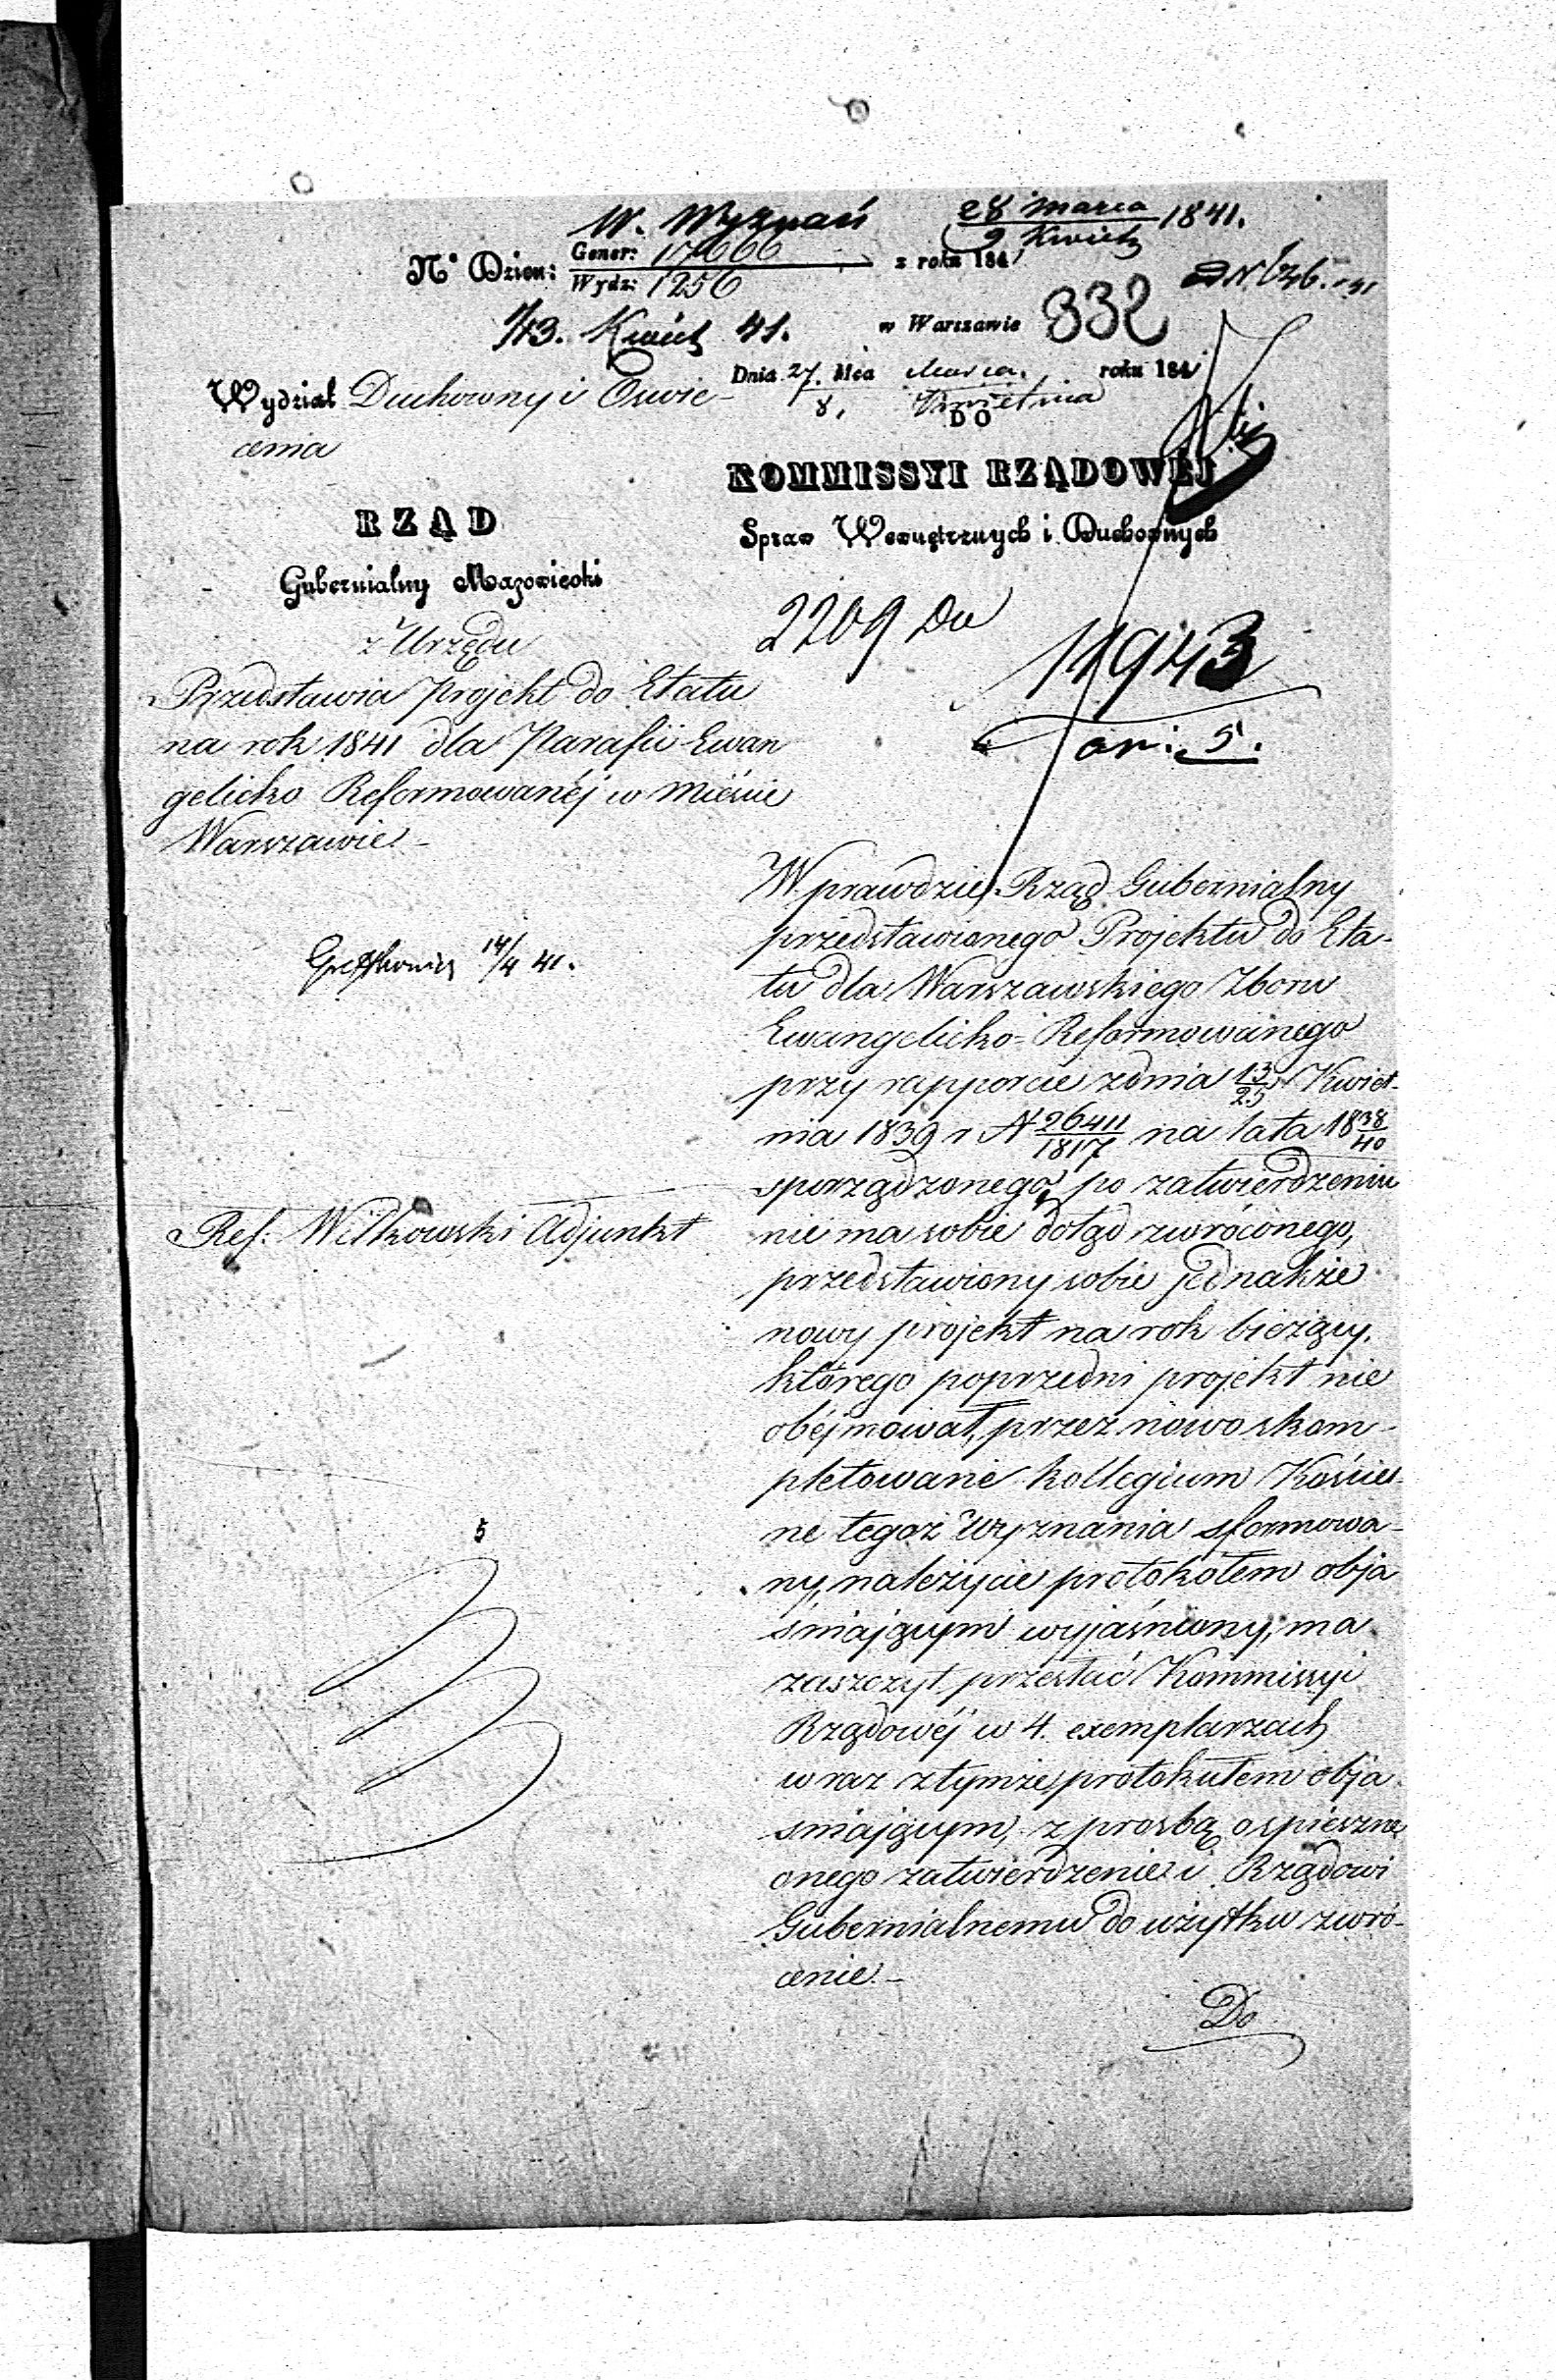 W. Wyznań
28 Marca / 9 Kwiet 1841.
No Dzien: Gener: 17666 / Wydz: 1256 z roku 1841
1/13. Kwiet 41.
w Warszawie 332
Dnia 27. Mca Marca / 8. Kwietnia roku 1841
Wydział Duchowny i Oswie-
cenia
DO
KOMMISSYI RZĄDOWEJ
Spraw Wewnętrznych i Duchownych
RZĄD
Gubernialny Mazowiecki
z Urzędu
Przedstawia Projekt do Etatu
na rok 1841 dla Parafii Ewan
gelicko Reformowanéj w mieście
Warszawie -
2209 Du
11943
an: 5.
14/4 41.
Ref: Witkowski Adjunkt
5
W prawdzie Rząd Gubernialny
przedstawionego Projektu do Eta-
tu dla Warszawskiego Zboru
Ewangelicko-Reformowanego
przy rapporcie z dnia 13/25 Kwiet-
nia 1839 r N 26411/1817 na lata 1838/40
sporządzonego, po zatwierdzeniu
nie ma sobie dotąd zwróconego,
przedstawiony sobie jednakże
nowy projekt na rok bieżący,
którego poprzedni projekt nie
obéjmował, przez nowo skom-
pletowane kollegium Kościel-
ne tegoż Wyznania sformowa-
ny, należycie protokółem obja
śniającym wyjaśniony, ma
zaszczyt przesłać Kommissyi
Rządowéj w 4. exemplarzach
wraz z tymże protokułem obja
śniającym, z prosbą o spieszne
onego zatwierdzenie i Rządowi
Gubernialnemu do użytku zwró-
cenie. -
Do